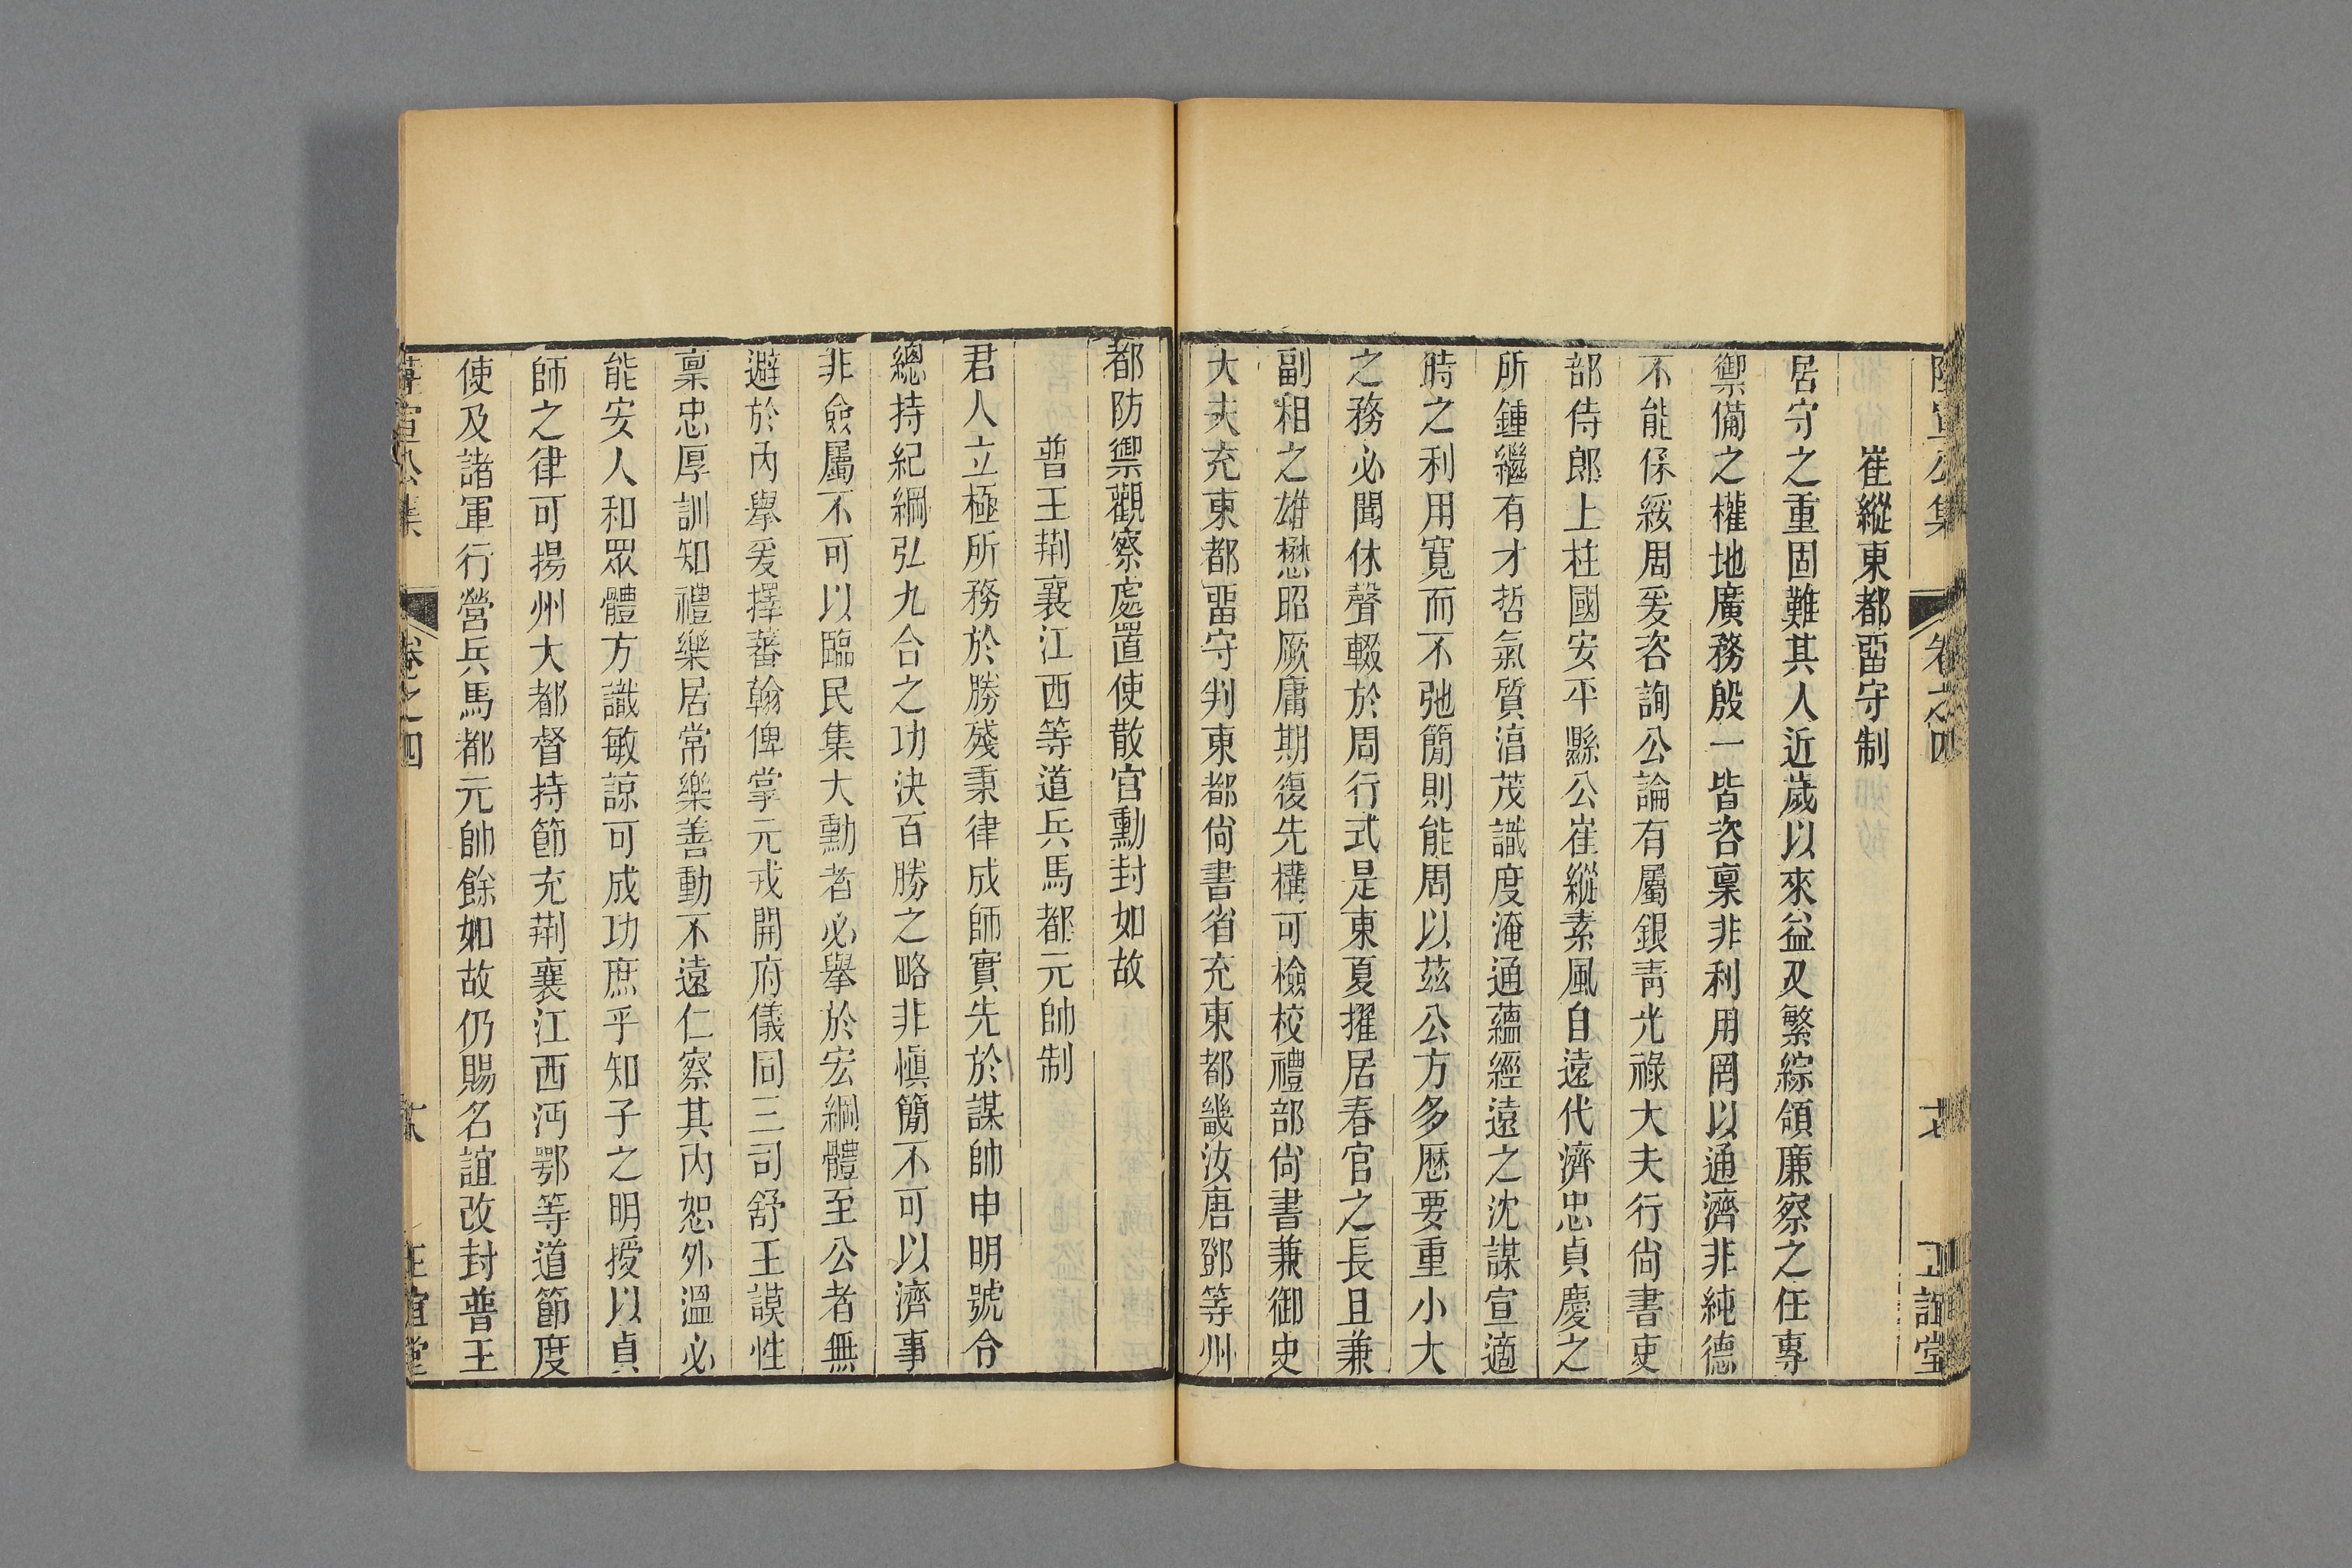 陸宣公集
卷之四
正誼堂
崔縱東都畱守制
居守之重固難其人近歲以來益又繁綜領廉察之任專
禦備之權地廣務殷一皆咨稟非利用罔以通濟非純德
不能保綏周爰咨詢公論有屬銀靑光祿大夫行尙書吏
部侍郎上柱國安平縣公崔縱素風自遠代濟忠貞慶之
所鍾繼有才哲氣質淯茂識度淹通蘊經遠之沈謀宣適
時之利用寬而不弛簡則能周以茲公方多歷要重小大
之務必聞休聲輟於周行式是東夏擢居春官之長且兼
副相之雄懋昭厥庸期復先構可檢校禮部尙書兼御史
大夫充東都畱守判東都尙書省充東都畿汝唐鄧等州
都防禦觀察處置使散官勳封如故
普王荆襄江西等道兵馬都元帥制
君人立極所務於勝殘秉律成師實先於謀帥申明號令
總持紀綱弘九合之功決百勝之略非愼簡不可以濟事
非僉屬不可以臨民集大勳者必舉於宏綱體至公者無
避於內舉爰擇蕃翰俾掌元戎開府儀同三司舒王謨性
稟忠厚訓知禮樂居常樂善動不遠仁察其內恕外溫必
能安人和眾體方識敏諒可成功庶乎知子之明授以貞
師之律可揚州大都督持節充荆襄江西沔鄂等道節度
使及諸軍行營兵馬都元帥餘如故仍賜名誼改封普王
陸宣公集
卷之四
正誼堂